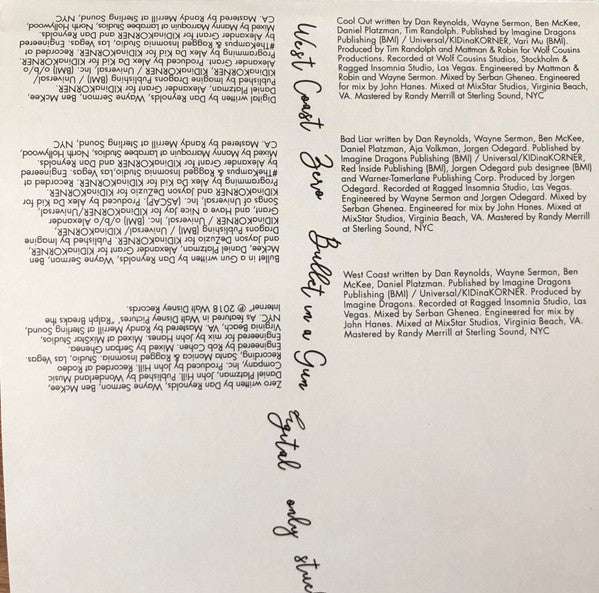 Cool Out written by Dan Reynolds, Wayne Sermon, Ben McKee,
Daniel Platzman, Tim Randolph. Published by Imagine Dragons
Publishing (BMI) / Universal/KIDinaKORNER, Vari Mu (BMI).
Produced by Tim Randolph and Mattman & Robin for Wolf Cousins
Productions. Recorded at Wolf Cousins Studios, Stockholm &
Ragged Insomnia Studio, Las Vegas. Engineered by Mattman &
Robin and Wayne Sermon. Mixed by Serban Ghenea. Engineered
for mix by John Hanes. Mixed at MixStar Studios, Virginia Beach,
VA. Mastered by Randy Merrill at Sterling Sound, NYC
Bad Liar written by Dan Reynolds, Wayne Sermon, Ben McKee,
Daniel Platzman, Aja Volkman, Jorgen Odegard. Published by
Imagine Dragons Publishing (BMI) / Universal/KIDinaKORNER,
Red Inside Publishing (BMI), Jorgen Odegard pub designee (BMI)
and Warner-Tamerlane Publishing Corp. Produced by Jorgen
Odegard. Recorded at Ragged Insomnia Studio, Las Vegas.
Engineered by Wayne Sermon and Jorgen Odegard. Mixed by
Serban Ghenea. Engineered for mix by John Hanes. Mixed at
MixStar Studios, Virginia Beach, VA. Mastered by Randy Merrill
at Sterling Sound, NYC
West Coast written by Dan Reynolds, Wayne Sermon, Ben
McKee, Daniel Platzman. Published by Imagine Dragons
Publishing (BMI) / Universal/KIDinaKORNER. Produced by
Imagine Dragons. Recorded at Ragged Insomnia Studio, Las
Vegas. Mixed by Serban Ghenea. Engineered for mix by
John Hanes. Mixed at MixStar Studios, Virginia Beach, VA.
Mastered by Randy Merrill at Sterling Sound, NYC
West Coast Zero Bullet in a Gun Digital only stuck
Zero written by Dan Reynolds, Wayne Sermon, Ben McKee,
Daniel Platzman, John Hill. Published by Wonderland Music
Company, Inc. Produced by John Hill. Recorded at Rodeo
Recording, Santa Monica & Ragged Insomnia. Studio, Las Vegas.
Engineered by Rob Cohen. Mixed by Serban Ghenea.
Engineered for mix by John Hanes. Mixed at MixStar Studios,
Virginia Beach, VA. Mastered by Randy Merrill at Sterling Sound,
NYC. As featured in Walt Disney Pictures' "Ralph Breaks the
Internet" ℗ 2018 Walt Disney Records.
Bullet in a Gun written by Dan Reynolds, Wayne Sermon, Ben
McKee, Daniel Platzman, Alexander Grant for KIDinaKORNER
and Jayson DeZuzio for KIDinaKORNER. Published by Imagine
Dragons Publishing (BMI) / Universal/ KIDinaKORNER,
KIDinaKORNER / Universal, Inc. (BMI) o/b/o Alexander
Grant, and Have a Nice Jay for KIDinaKORNER/Universal,
Songs of Universal, Inc. (ASCAP). Produced by Alex Da Kid for
KIDinaKORNER and Jayson DeZuzio for KIDinaKORNER.
Programming by Alex Da Kid for KIDinaKORNER. Recorded at
#TheKampus & Ragged Insomnia Studios, Las Vegas. Engineered
by Alexander Grant for KIDinaKORNER and Dan Reynolds.
Mixed by Manny Marroquin at Larrabee Studios, North Hollywood,
CA. Mastered by Randy Merrill at Sterling Sound, NYC
Digital written by Dan Reynolds, Wayne Sermon, Ben McKee,
Daniel Platzman, Alexander Grant for KIDinaKORNER.
Published by Imagine Dragons Publishing (BMI) / Universal /
KIDinaKORNER, KIDinaKORNER / Universal, Inc. (BMI) o/b/o
Alexander Grant. Produced by Alex Da Kid for KIDinaKORNER.
Programming by Alex Da Kid for KIDinaKORNER. Recorded at
#TheKampus & Ragged Insomnia Studio, Las Vegas. Engineered
by Alexander Grant for KIDinaKORNER and Dan Reynolds.
Mixed by Manny Marroquin at Larrabee Studios, North Hollywood,
CA. Mastered by Randy Merrill at Sterling Sound, NYC